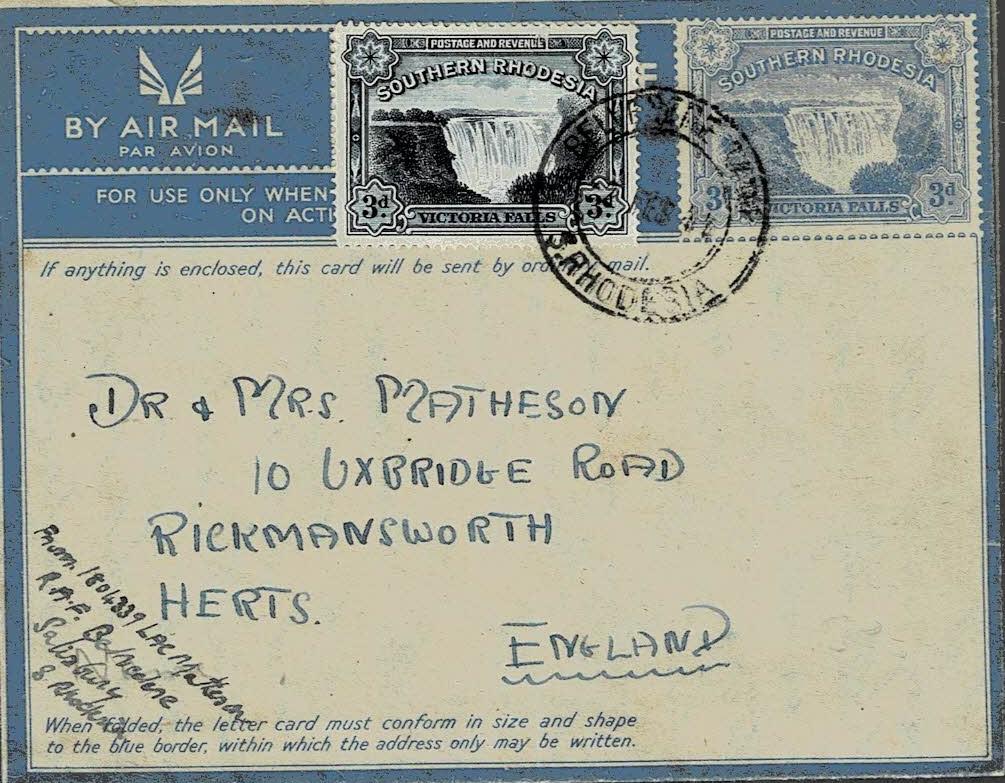 BY AIR MAIL
PAR AVION
FOR USE ONLY WHEN
ON ACTI
POSTAGE AND REVENUE
SOUTHERN RHODESIA
3d VICTORIA FALLS 3d
POSTAGE AND REVENUE
SOUTHERN RHODESIA
3d VICTORIA FALLS 3d
FEB 44
S. RHODESIA
If anything is enclosed, this card will be sent by ord mail.
DR & MRS. MATHESON
10 UXBRIDGE ROAD
RICKMANSWORTH
HERTS.
ENGLAND
From 1804339 LAC Matheson
R.A.F. Belvedere
Salisbury
S Rhodesia
When folded, the letter card must conform in size and shape
to the blue border, within which the address only may be written.